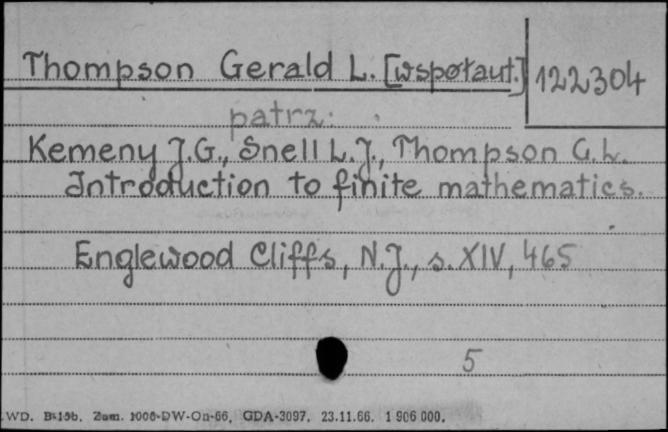 Thompson Gerald L. [współaut.] 122304
patrz:
Kemeny J.G., Snell L.J., Thompson G.L.
Introduction to finite mathematics.
Englewood Cliffs, N.J., s. XIV, 465
5
WD. B-15b. Zam. 1006-DW-On-66. GDA-3097. 23.11.66. 1 906 000.